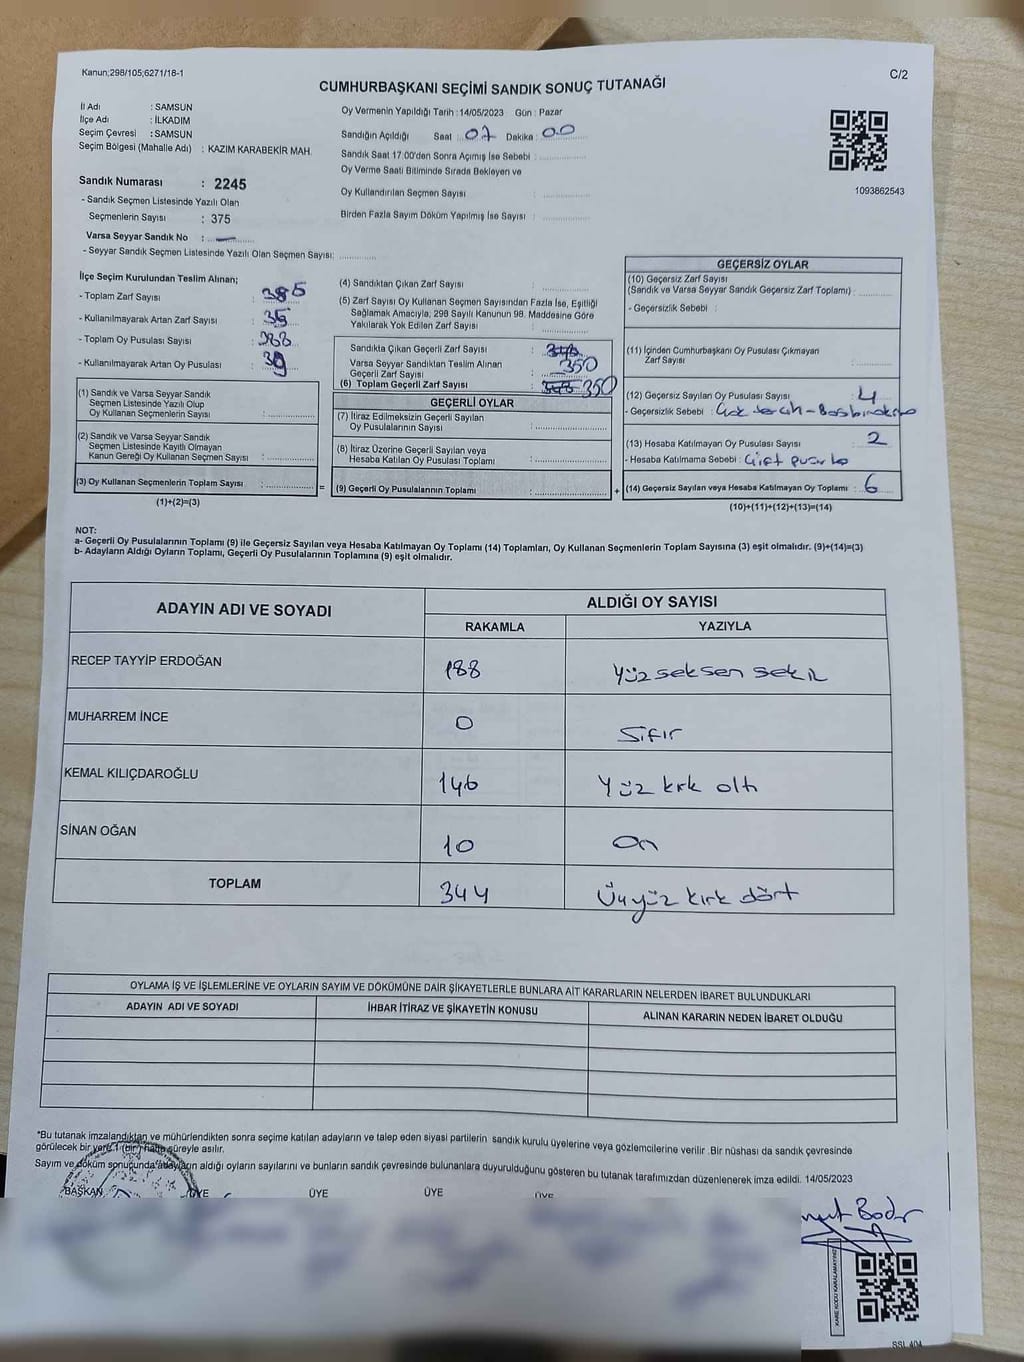 Kanun;298/105;6271/18-1
C/2
CUMHURBAŞKANI SEÇİMİ SANDIK SONUÇ TUTANAĞI
İl Adı : SAMSUN
İlçe Adı : İLKADIM
Seçim Çevresi : SAMSUN
Seçim Bölgesi (Mahalle Adı) : KAZIM KARABEKİR MAH.
Sandık Numarası : 2245
- Sandık Seçmen Listesinde Yazılı Olan
Seçmenlerin Sayısı : 375
Varsa Seyyar Sandık No : —
- Seyyar Sandık Seçmen Listesinde Yazılı Olan Seçmen Sayısı:
Oy Vermenin Yapıldığı Tarih : 14/05/2023 Gün : Pazar
Sandığın Açıldığı Saat : 07 Dakika : 00
Sandık Saat 17:00'den Sonra Açımış İse Sebebi :
Oy Verme Saati Bitiminde Sırada Bekleyen ve
Oy Kullandırılan Seçmen Sayısı :
Birden Fazla Sayım Döküm Yapılmış İse Sayısı :
1093862543
İlçe Seçim Kurulundan Teslim Alınan;
- Toplam Zarf Sayısı : 385
- Kullanılmayarak Artan Zarf Sayısı : 35
- Toplam Oy Pusulası Sayısı :
- Kullanılmayarak Artan Oy Pusulası :
(1) Sandık ve Varsa Seyyar Sandık
Seçmen Listesinde Yazılı Olup
Oy Kullanan Seçmenlerin Sayısı :
(2) Sandık ve Varsa Seyyar Sandık
Seçmen Listesinde Kayıtlı Olmayan
Kanun Gereği Oy Kullanan Seçmen Sayısı :
(3) Oy Kullanan Seçmenlerin Toplam Sayısı :
(1)+(2)=(3)
(4) Sandıktan Çıkan Zarf Sayısı :
(5) Zarf Sayısı Oy Kullanan Seçmen Sayısından Fazla İse, Eşitliği
Sağlamak Amacıyla, 298 Sayılı Kanunun 98. Maddesine Göre
Yakılarak Yok Edilen Zarf Sayısı :
Sandıkta Çıkan Geçerli Zarf Sayısı :
Varsa Seyyar Sandıktan Teslim Alınan
Geçerli Zarf Sayısı : 350
(6) Toplam Geçerli Zarf Sayısı : 350
=
GEÇERLİ OYLAR
(7) İtiraz Edilmeksizin Geçerli Sayılan
Oy Pusulalarının Sayısı :
(8) İtiraz Üzerine Geçerli Sayılan veya
Hesaba Katılan Oy Pusulası Toplamı :
(9) Geçerli Oy Pusulalarının Toplamı :
+
GEÇERSİZ OYLAR
(10) Geçersiz Zarf Sayısı
(Sandık ve Varsa Seyyar Sandık Geçersiz Zarf Toplamı) :
- Geçersizlik Sebebi :
(11) İçinden Cumhurbaşkanı Oy Pusulası Çıkmayan
Zarf Sayısı :
(12) Geçersiz Sayılan Oy Pusulası Sayısı : 4
- Geçersizlik Sebebi : Çok tercih -
(13) Hesaba Katılmayan Oy Pusulası Sayısı : 2
- Hesaba Katılmama Sebebi : Çift pusula
(14) Geçersiz Sayılan veya Hesaba Katılmayan Oy Toplamı : 6
(10)+(11)+(12)+(13)=(14)
NOT:
a- Geçerli Oy Pusulalarının Toplamı (9) ile Geçersiz Sayılan veya Hesaba Katılmayan Oy Toplamı (14) Toplamları, Oy Kullanan Seçmenlerin Toplam Sayısına (3) eşit olmalıdır. (9)+(14)=(3)
b- Adayların Aldığı Oyların Toplamı, Geçerli Oy Pusulalarının Toplamına (9) eşit olmalıdır.
ADAYIN ADI VE SOYADI
ALDIĞI OY SAYISI
RAKAMLA YAZIYLA
RECEP TAYYİP ERDOĞAN 188 Yüz seksen sekiz
MUHARREM İNCE 0 Sıfır
KEMAL KILIÇDAROĞLU 146 Yüz kırk altı
SİNAN OĞAN 10 On
TOPLAM 344 Üçyüz kırk dört
OYLAMA İŞ VE İŞLEMLERİNE VE OYLARIN SAYIM VE DÖKÜMÜNE DAİR ŞİKAYETLERLE BUNLARA AİT KARARLARIN NELERDEN İBARET BULUNDUKLARI
ADAYIN ADI VE SOYADI İHBAR İTİRAZ VE ŞİKAYETİN KONUSU ALINAN KARARIN NEDEN İBARET OLDUĞU
*Bu tutanak imzalandıktan ve mühürlendikten sonra seçime katılan adayların ve talep eden siyasi partilerin sandık kurulu üyelerine veya gözlemcilerine verilir .Bir nüshası da sandık çevresinde
görülecek bir yere 1 (bir) hafta süreyle asılır.
Sayım ve döküm sonucunda adayların aldığı oyların sayılarını ve bunların sandık çevresinde bulunanlara duyurulduğunu gösteren bu tutanak tarafımızdan düzenlenerek imza edildi. 14/05/2023
BAŞKAN ÜYE ÜYE ÜYE ÜYE
KARE KODU KARALAMAYINIZ
SSI 404